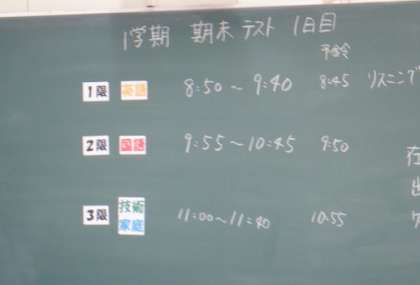 1学期 期末テスト 1日目
予鈴
1限 英語 8:50～9:40 8:45 リスニング
2限 国語 9:55～10:45 9:50
在
3限 技術 家庭 11:00～11:40 10:55
出